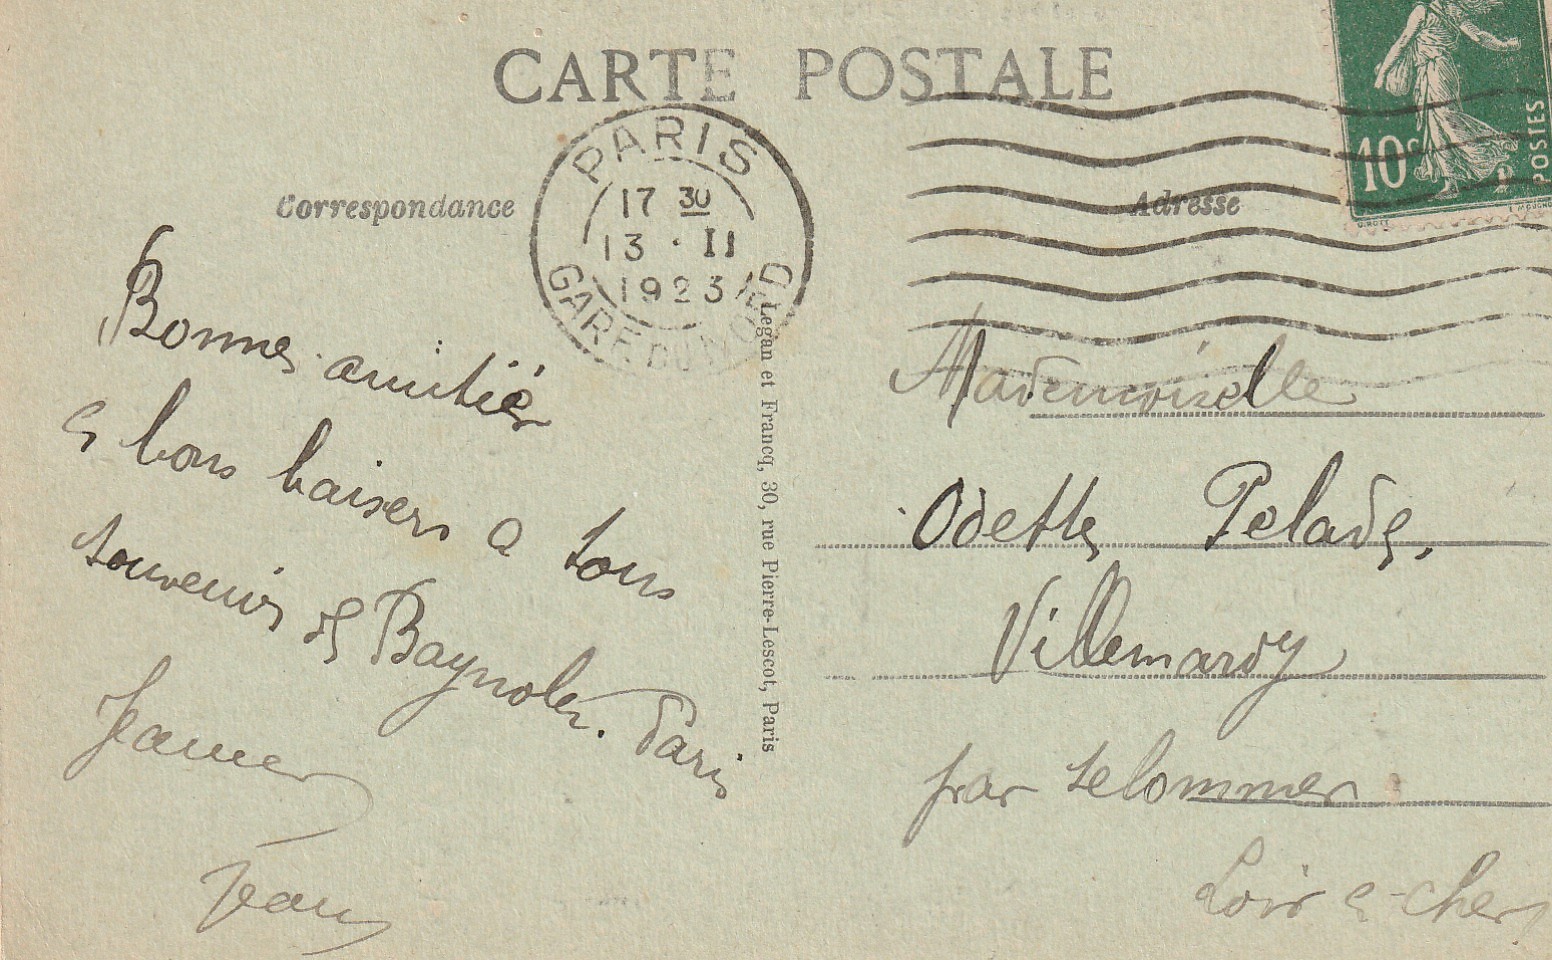 CARTE POSTALE
Correspondance
Adresse
PARIS
17 30
13 · II
1923
GARE DU NORD
10c
POSTES
Bonnes amitiés
e bons baisers a tous
souvenir de Bagnolet. Paris
Jeanne
Jean
Legan et Francq, 30, rue Pierre-Lescot, Paris
Mademoiselle
Odette Pelade,
Villemardy
par selommer
Loir e-cher